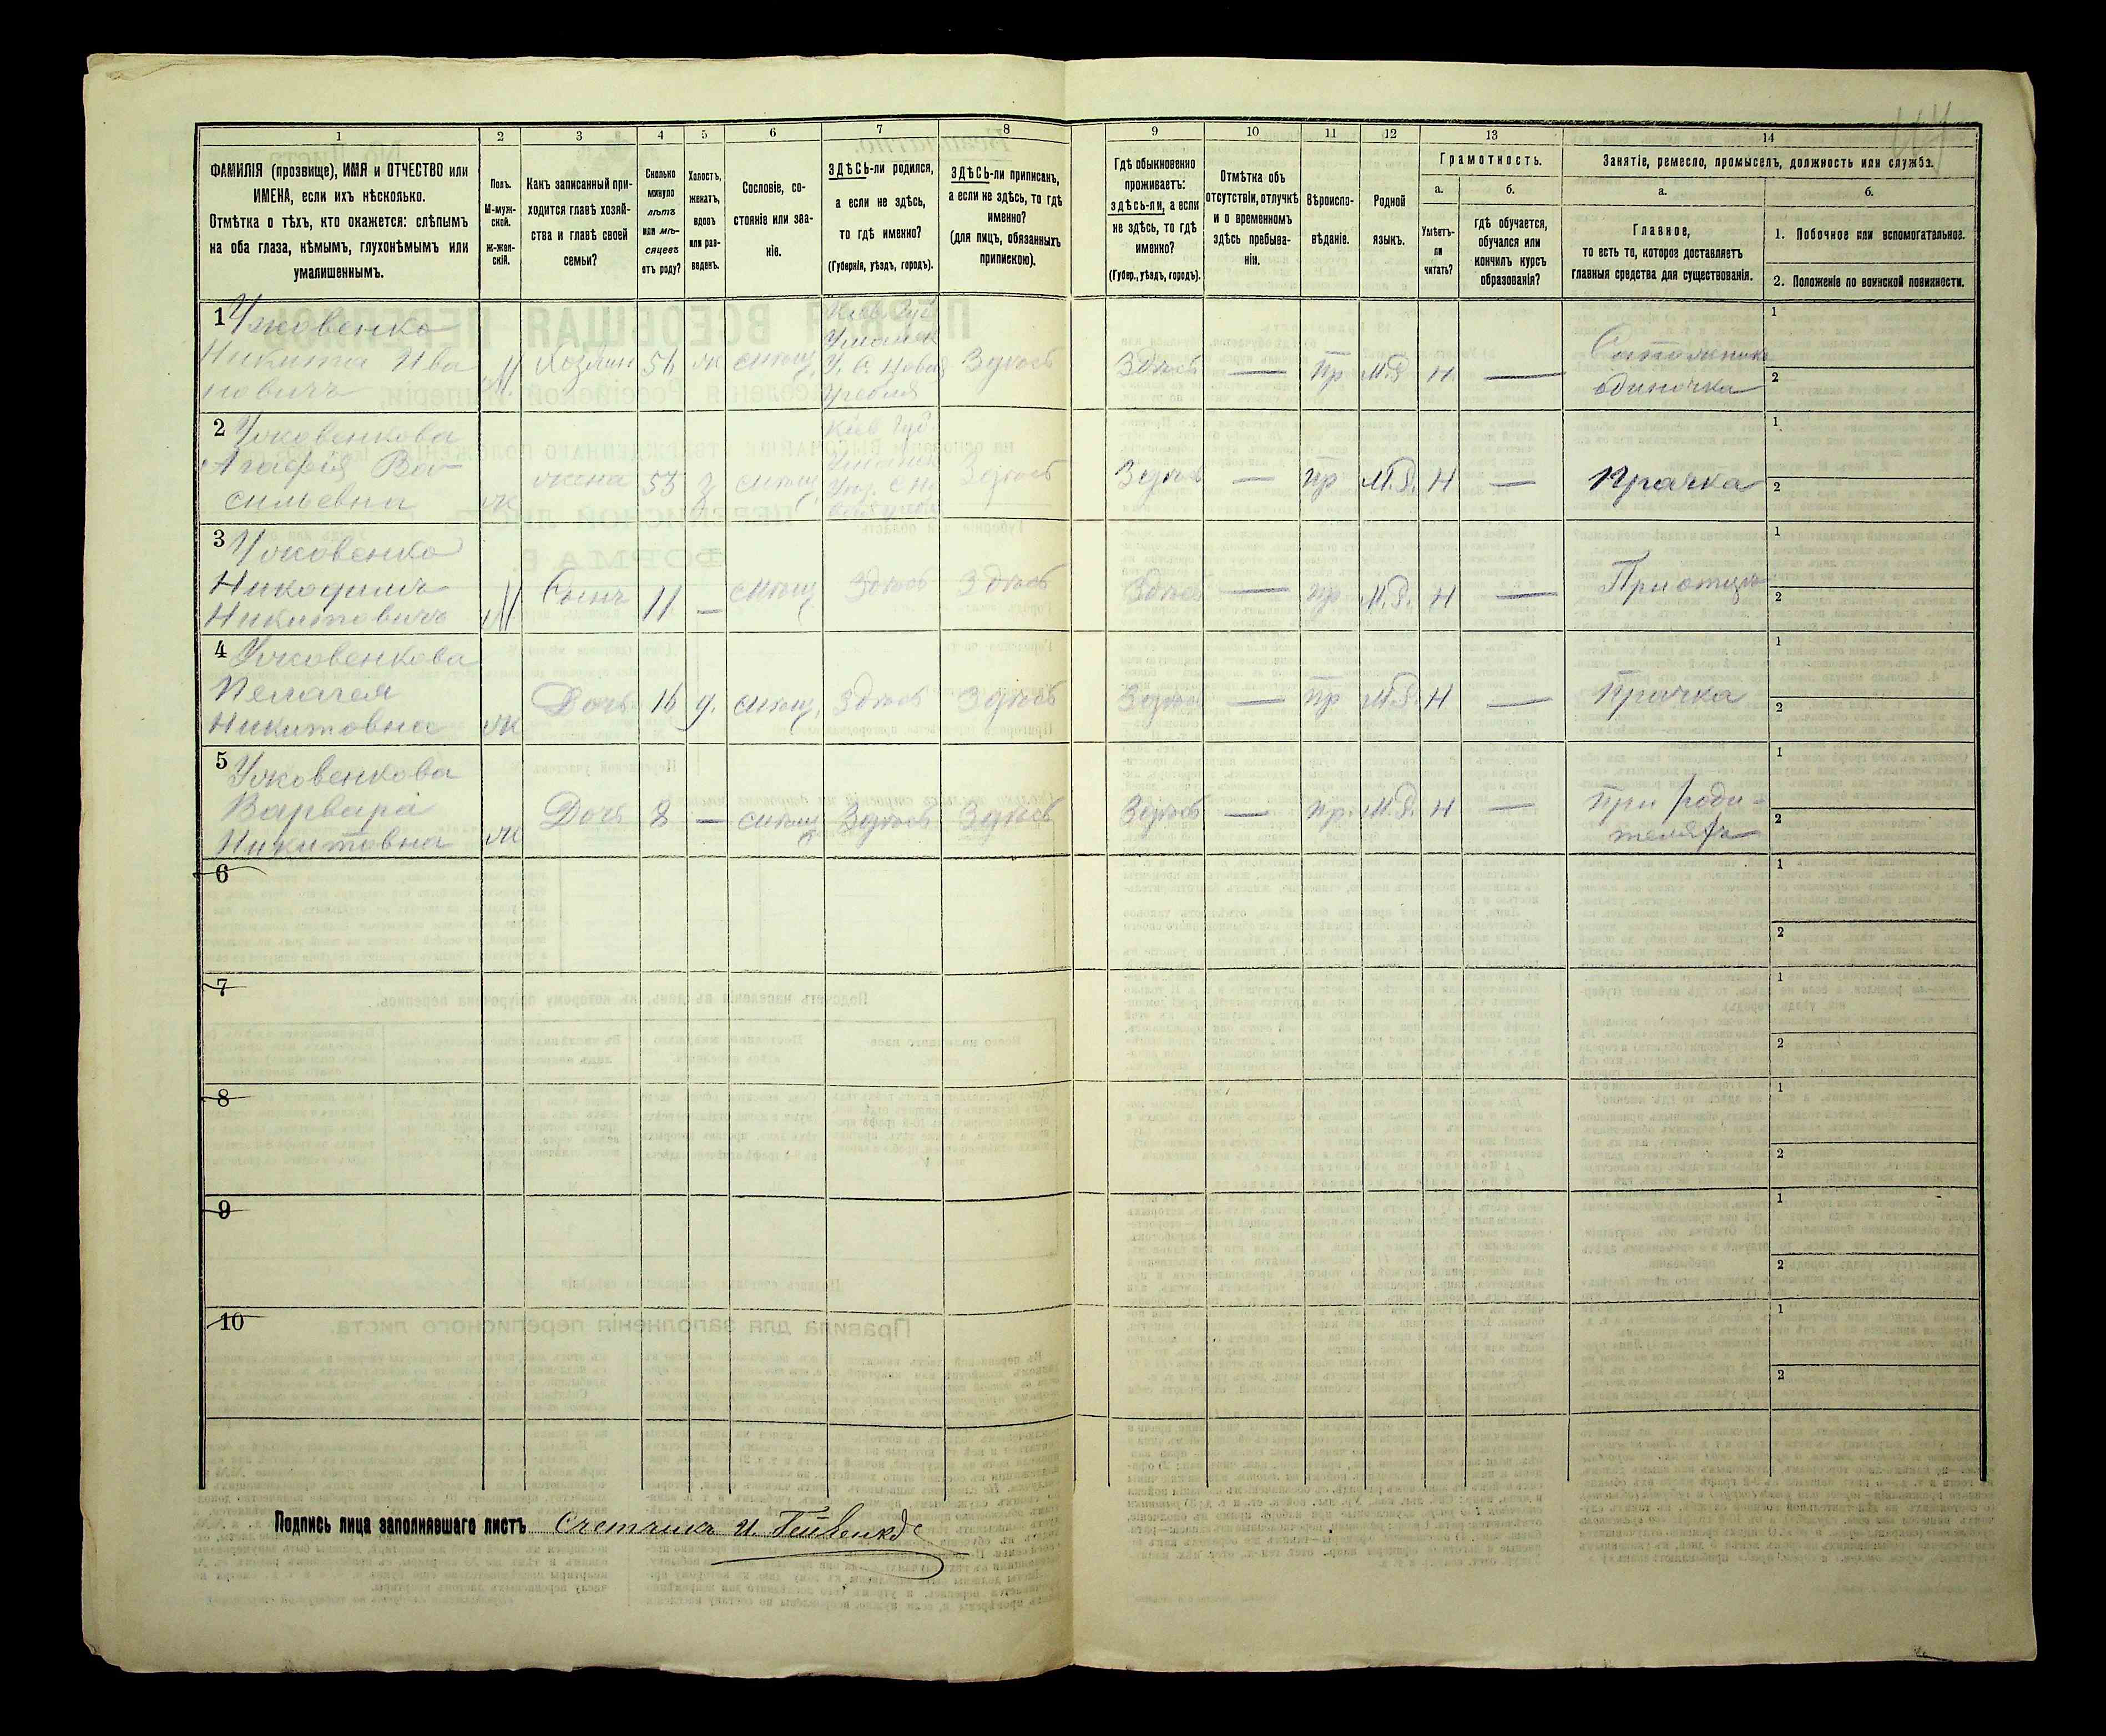 1
2
3
4
5
6
7
8
9
10
11
12
13
14
ФАМИЛІЯ (прозвище), ИМЯ и ОТЧЕСТВО или
ИМЕНА, если ихъ нѣсколько.
Отмѣтка о тѣхъ, кто окажется: слѣпымъ
на оба глаза, нѣмымъ, глухонѣмымъ или
умалишеннымъ.
Полъ.
М-муж-
ской.
ж-жен-
скій.
Какъ записанный при-
ходится главѣ хозяй-
ства и главѣ своей
семьи?
Сколько
минуло
лѣтъ
или мѣ-
сяцевъ
отъ роду?
Холостъ,
женатъ,
вдовъ
или раз-
веденъ.
Сословіе, со-
стояніе или зва-
ніе.
ЗДѢСЬ-ли родился,
а если не здѣсь,
то гдѣ именно?
(Губернія, уѣздъ, городъ).
ЗДѢСЬ-ли приписанъ,
а если не здѣсь, то гдѣ
именно?
(для лицъ, обязанныхъ
припискою).
Гдѣ обыкновенно
проживаетъ:
здѣсь-ли, а если
не здѣсь, то гдѣ
именно?
(Губер., уѣздъ, городъ).
Отмѣтка объ
отсутствіи, отлучкѣ
и о временномъ
здѣсь пребыва-
ніи.
Вѣроиспо-
вѣданіе.
Родной
языкъ.
Грамотность.
а.
б.
Умѣетъ-
ли
читать?
гдѣ обучается,
обучался или
кончилъ курсъ
образованія?
Занятіе, ремесло, промыселъ, должность или служба.
а.
б.
Главное,
то есть то, которое доставляетъ
главныя средства для существованія.
1. Побочное или вспомогательное.
2. Положеніе по воинской повинности.
1 Ужовенко
Никита Ива
новичъ
М
Хозяин
56
ж
мѣщ.
Кіев. Губ.
Уманск
У. С. Новая
Гребля
Здѣсь
Здѣсь
—
Пр
М.Р.
Н
—
Сапожникъ
одиночка
1
2
2 Ужовенкова
Агафія Ва
сильевна
ж
жена
53
З
мѣщ.
Кіев Губ.
Уманск
Здѣсь
Здѣсь
—
пр
М.Р.
Н
—
Прачка
1
2
3 Ужовенко
Никодимъ
Никитовичъ
М
Сынъ
11
—
мѣщ
Здѣсь
Здѣсь
Здѣсь
—
пр
М.Р.
Н
—
При отцѣ
1
2
4 Ужовенкова
Пелагея
Никитовна
ж
Дочь
16
д.
мѣщ.
Здѣсь
Здѣсь
Здѣсь
—
пр
М.Р.
Н
—
Прачка
1
2
5 Ужовенкова
Варвара
Никитовна
ж
Дочь
8
—
мѣщ
Здѣсь
Здѣсь
Здѣсь
—
пр.
М.Р.
Н
—
При роди-
теляхъ
1
2
6
1
2
7
1
2
8
1
2
9
1
2
10
1
2
Подпись лица заполнявшаго листъ Счетчикъ И.